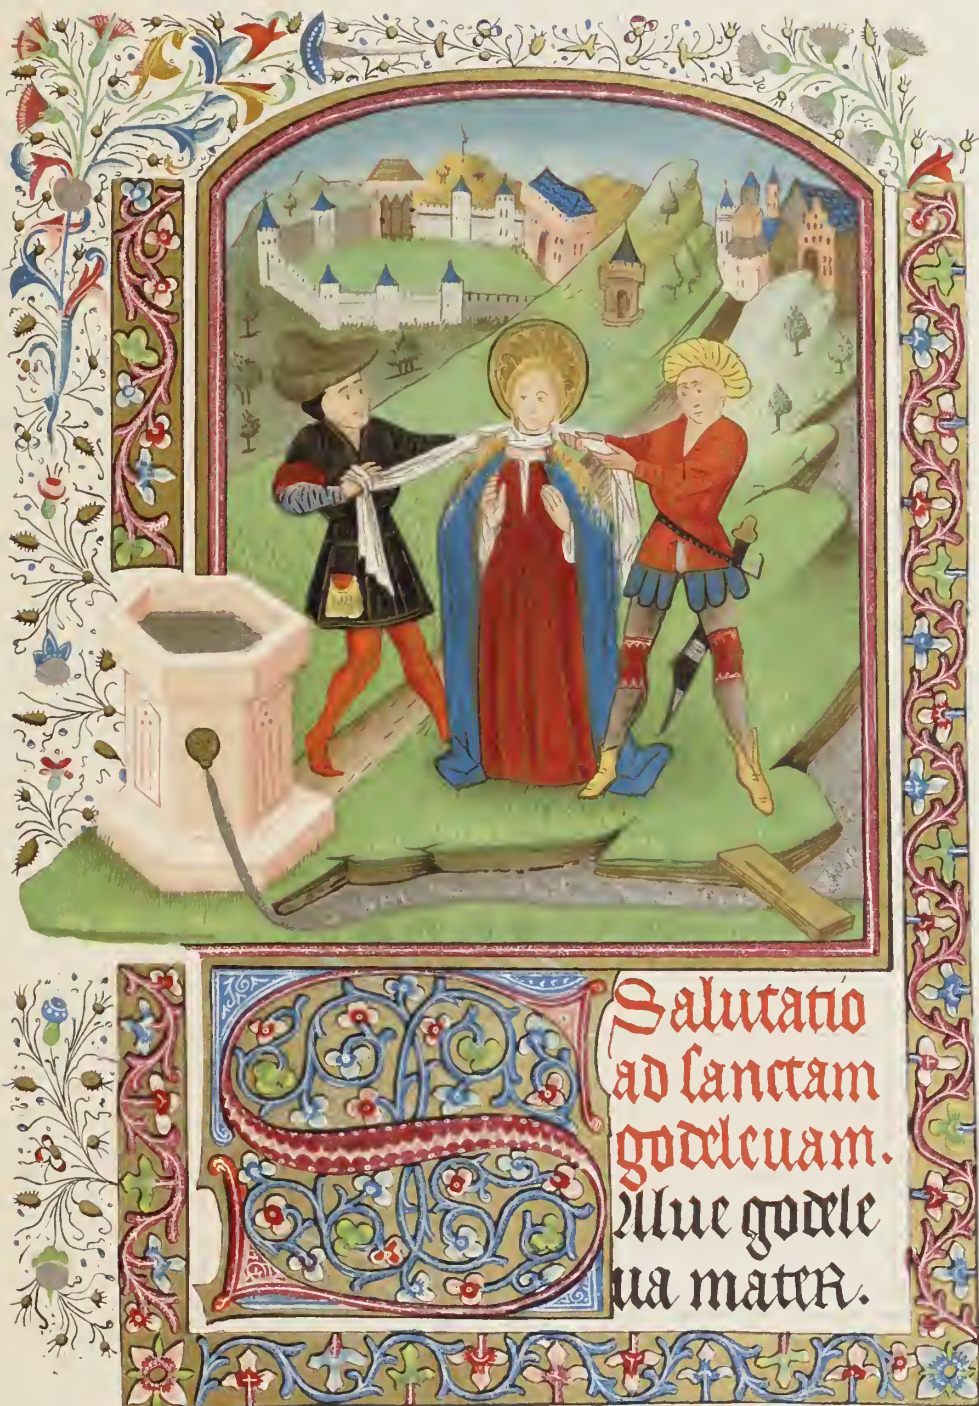 Salutatio
ad sanctam
godeleuam.
SAlue godele
ua mateR.